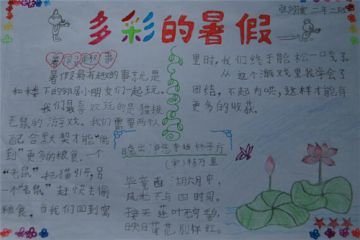 多彩的暑假
暑假趣事
暑假最有趣的事就是
和楼下的邻居小朋友们一起玩。
我们最喜欢玩的是猫捉
老鼠的游戏。我们需要两人
配合默契才能“偷
到”更多的粮食。一个
“老鼠”把猫引开，另
一个“老鼠”赶快去偷
粮食。当我们回到窝
里时，我们终于能松一口气了。
从这个游戏里我学会了
团结，不起内哄，这样才能有
更多的收获。
晓出净慈寺送林子方
（宋）杨万里
毕竟西湖六月中，
风光不与四时同。
接天莲叶无穷碧，
映日荷花别样红。